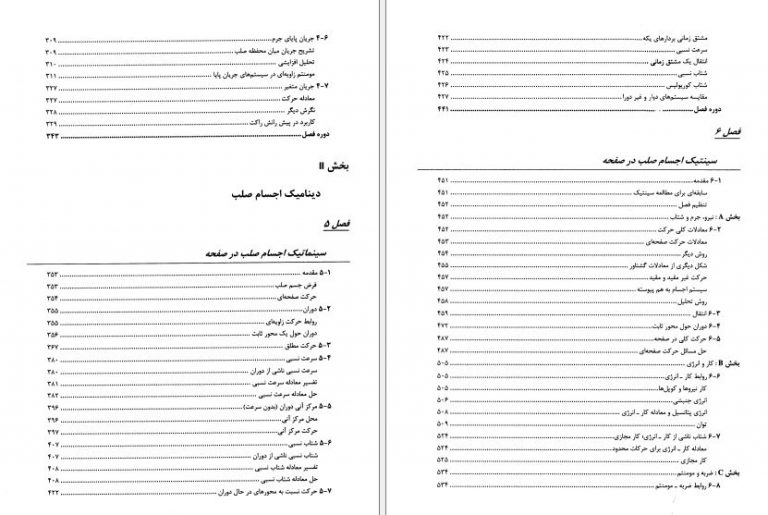 ۴-۶ جریان پایای جرم ۳۰۹
تشریح جریان میان محفظه صلب ۳۰۹
تحلیل افزایشی ۳۱۰
مومنتم زاویه‌ای در سیستم‌های جریان پایا ۳۱۱
۴-۷ جریان متغیر ۳۲۷
معادله حرکت ۳۲۷
نگرش دیگر ۳۲۸
کاربرد در پیش رانش راکت ۳۲۹
دوره فصل ۳۴۳
بخش II
دینامیک اجسام صلب
فصل ۵
سینماتیک اجسام صلب در صفحه
۵-۱ مقدمه ۳۵۳
فرض جسم صلب ۳۵۳
حرکت صفحه‌ای ۳۵۴
۵-۲ دوران ۳۵۵
روابط حرکت زاویه‌ای ۳۵۵
دوران حول یک محور ثابت ۳۵۶
۵-۳ حرکت مطلق ۳۶۷
۵-۴ سرعت نسبی ۳۸۰
سرعت نسبی ناشی از دوران ۳۸۰
تفسیر معادله سرعت نسبی ۳۸۱
حل معادله سرعت نسبی ۳۸۲
۵-۵ مرکز آنی دوران (بدون سرعت) ۳۹۶
محل مرکز آنی ۳۹۶
حرکت مرکز آنی ۳۹۷
۵-۶ شتاب نسبی ۴۰۷
شتاب نسبی ناشی از دوران ۴۰۷
تفسیر معادله شتاب نسبی ۴۰۸
حل معادله شتاب نسبی ۴۰۸
۵-۷ حرکت نسبت به محورهای در حال دوران ۴۲۲
مشتق زمانی بردارهای یکه ۴۲۲
سرعت نسبی ۴۲۳
انتقال یک مشتق زمانی ۴۲۴
شتاب نسبی ۴۲۵
شتاب کوریولیس ۴۲۶
مقایسه سیستم‌های دوار و غیر دوار ۴۲۷
دوره فصل ۴۴۱
فصل ۶
سینتیک اجسام صلب در صفحه
۶-۱ مقدمه ۴۵۱
سابقه‌ای برای مطالعه سینتیک ۴۵۱
تنظیم فصل ۴۵۲
بخش A: نیرو، جرم و شتاب ۴۵۲
۶-۲ معادلات کلی حرکت ۴۵۲
معادلات حرکت صفحه‌ای ۴۵۳
روش دیگر ۴۵۴
شکل دیگری از معادلات گشتاور ۴۵۵
حرکت غیر مقید و مقید ۴۵۷
سیستم اجسام به هم پیوسته ۴۵۷
روش تحلیل ۴۵۸
۶-۳ انتقال ۴۵۹
۶-۴ دوران حول محور ثابت ۴۷۲
۶-۵ حرکت کلی در صفحه ۴۸۷
حل مسائل حرکت صفحه‌ای ۴۸۷
بخش B: کار و انرژی ۵۰۵
۶-۶ روابط کار ـ انرژی ۵۰۵
کار نیروها و کوپل‌ها ۵۰۵
انرژی جنبشی ۵۰۶
انرژی پتانسیل و معادله کار ـ انرژی ۵۰۸
توان ۵۰۹
۶-۷ شتاب ناشی از کار ـ انرژی؛ کار مجازی ۵۲۴
معادله کار ـ انرژی برای حرکات محدود ۵۲۴
کار مجازی ۵۲۵
بخش C: ضربه و مومنتم ۵۳۴
۶-۸ روابط ضربه ـ مومنتم ۵۳۴